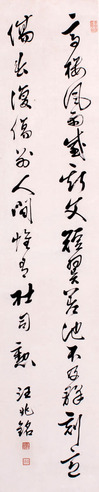 高樓風雨感斯文短翼差池不及群刻意
傷春復傷別人間惟有杜司勳
汪兆銘